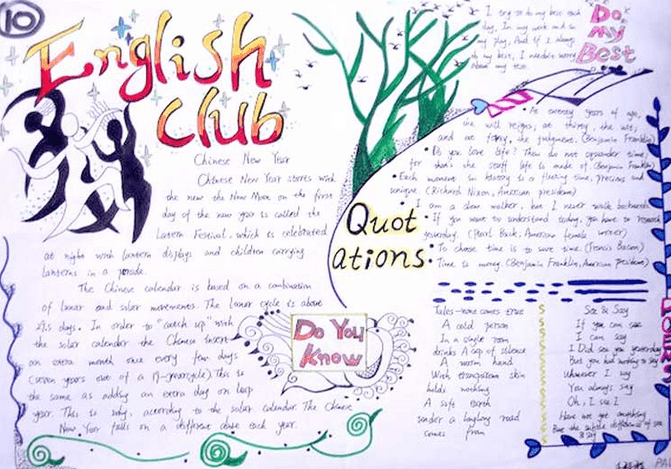 10
English
Club
Chinese New Year
Chinese New Year starts with
the new the New Moon on the first
day of the new year is called the
Lantern Festival, which is celebrated
at night with lantern displays and children carrying
lanterns in a parade.
The Chinese calendar is based on a combination
of lunar and solar movements. The lunar cycle is about
29.5 days. In order to "catch up" with
the solar calendar the Chinese insert
an extra month once every few
years out of a This is
the same as adding an extra day on leap
year. This is why, according to the solar calendar. The Chinese
New Year falls on a different date each year.
Do You
Know
Do
My
Best
I try to do my best each
day, In my work and in
my play, And if I always
do my best, I needn't worry
About my test
Quot
ations:
At twenty years of age,
the will reigns; at thirty, the wit;
and at forty, the judgment. (Benjamin Franklin)
Do you love life? Then do not squander time,
for that's the stuff life is made of (Benjamin Franklin)
Each moment in history is a fleeting time, precious and
unique. (Richard Nixon, American president)
I am a slow walker, but I never walk backwards.
If you want to understand today, you have to research
yesterday. (Pearl Buck, American female writer)
To choose time is to save time. (Francis Bacon)
Time is money. (Benjamin Franklin, American president)
Tales-none comes true
A cold person
In a single room
drinks A cup of silence
A warm hand
With skin
holds nothing
A safe earth
under a road
comes from
See & Say
If you can see
I can say
I Did see you yesterday
But you had nothing to say
Whenever I say
You always say
Oh, I see !
Have we got something
But the subtle difference of see
& say